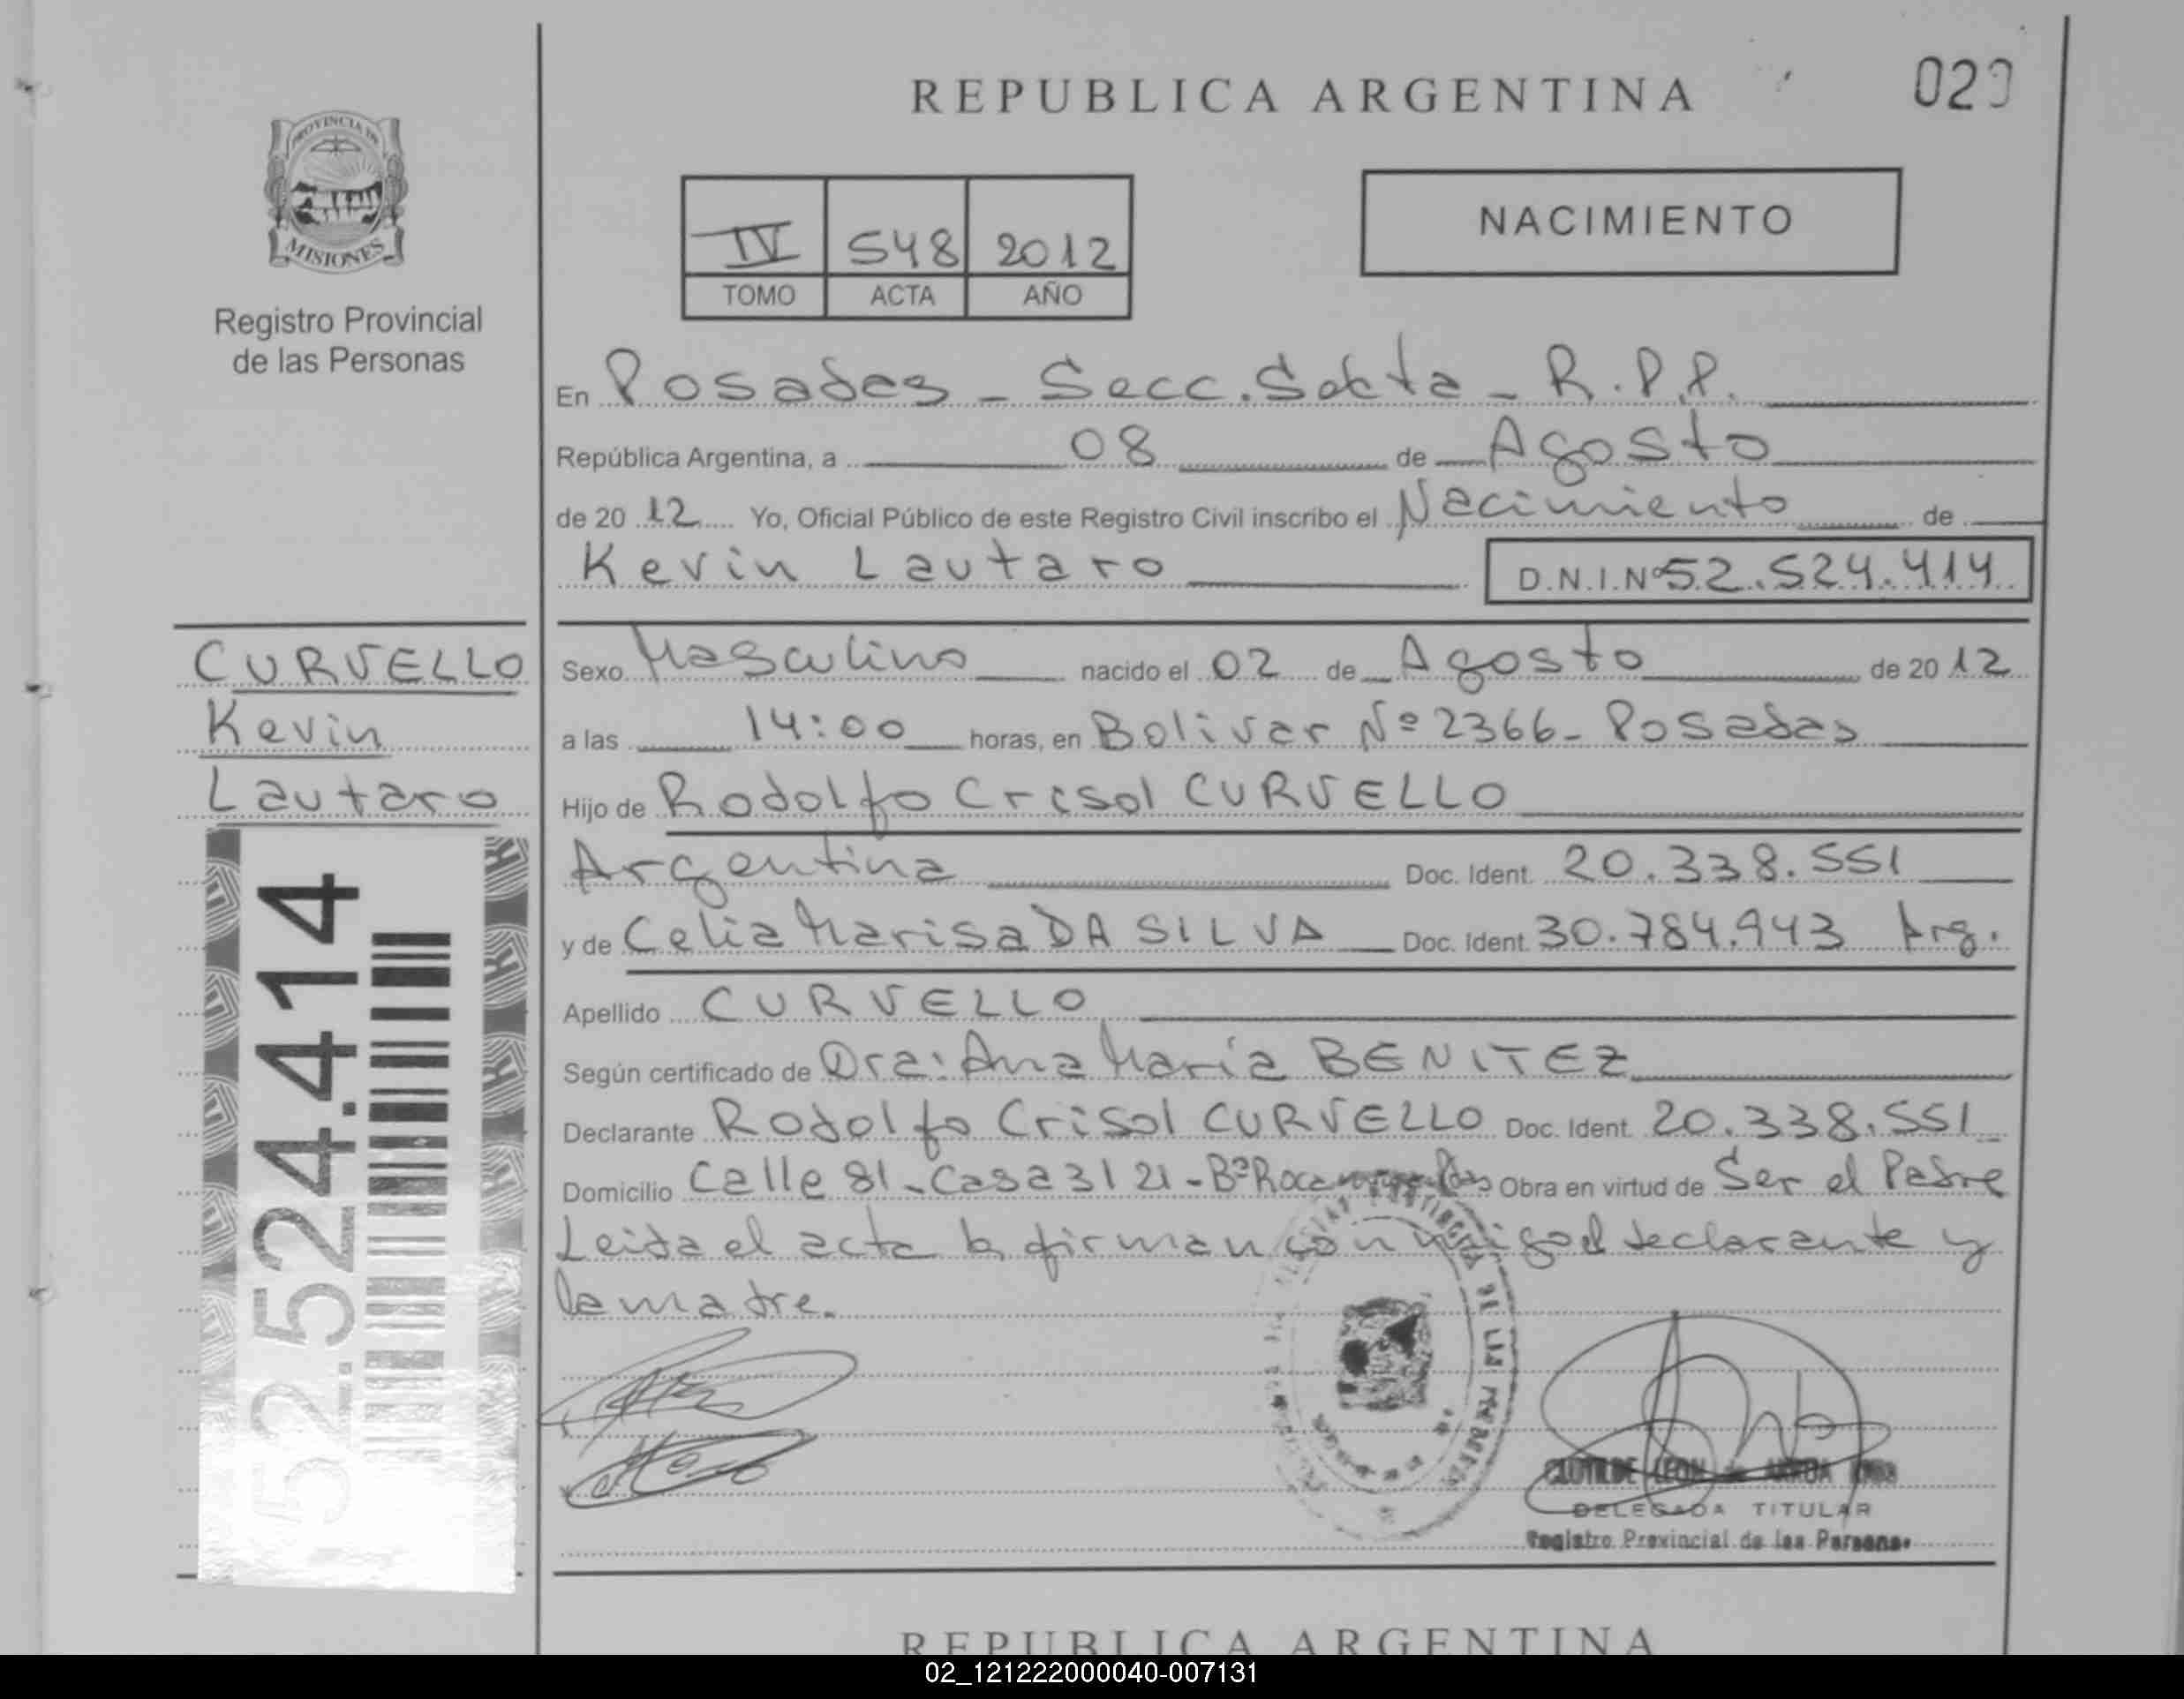 REPUBLICA ARGENTINA
029
PROVINCIA DE
MISIONES
Registro Provincial
de las Personas
NACIMIENTO
IV 548 2012
TOMO ACTA AÑO
En Posadas - Secc. Sexta - R.P.P.
República Argentina, a 08 de Agosto
de 20 12 Yo, Oficial Público de este Registro Civil inscribo el Nacimiento de
Kevin Lautaro D.N.I. Nº 52.524.414
CURVELLO
Kevin
Lautaro
52.524.414
Sexo Masculino nacido el 02 de Agosto de 20 12
a las 14:00 horas, en Bolivar Nº 2366 - Posadas
Hijo de Rodolfo Crisol CURVELLO
Argentina Doc. Ident. 20.338.551
y de Celia Marisa DA SILVA Doc. Ident. 30.784.943 Arg.
Apellido CURVELLO
Según certificado de Dra: Ana María BENITEZ
Declarante Rodolfo Crisol CURVELLO Doc. Ident. 20.338.551
Domicilio Calle 81 - Casa 3121 - Bº Obra en virtud de Ser el Padre
Leida el acta la firman conmigo el declarante y
la madre.
DE LAS PERSONAS
CLOTILDE LEON de
DELEGADA TITULAR
Registro Provincial de las Personas
REPUBLICA ARGENTINA
02_121222000040-007131